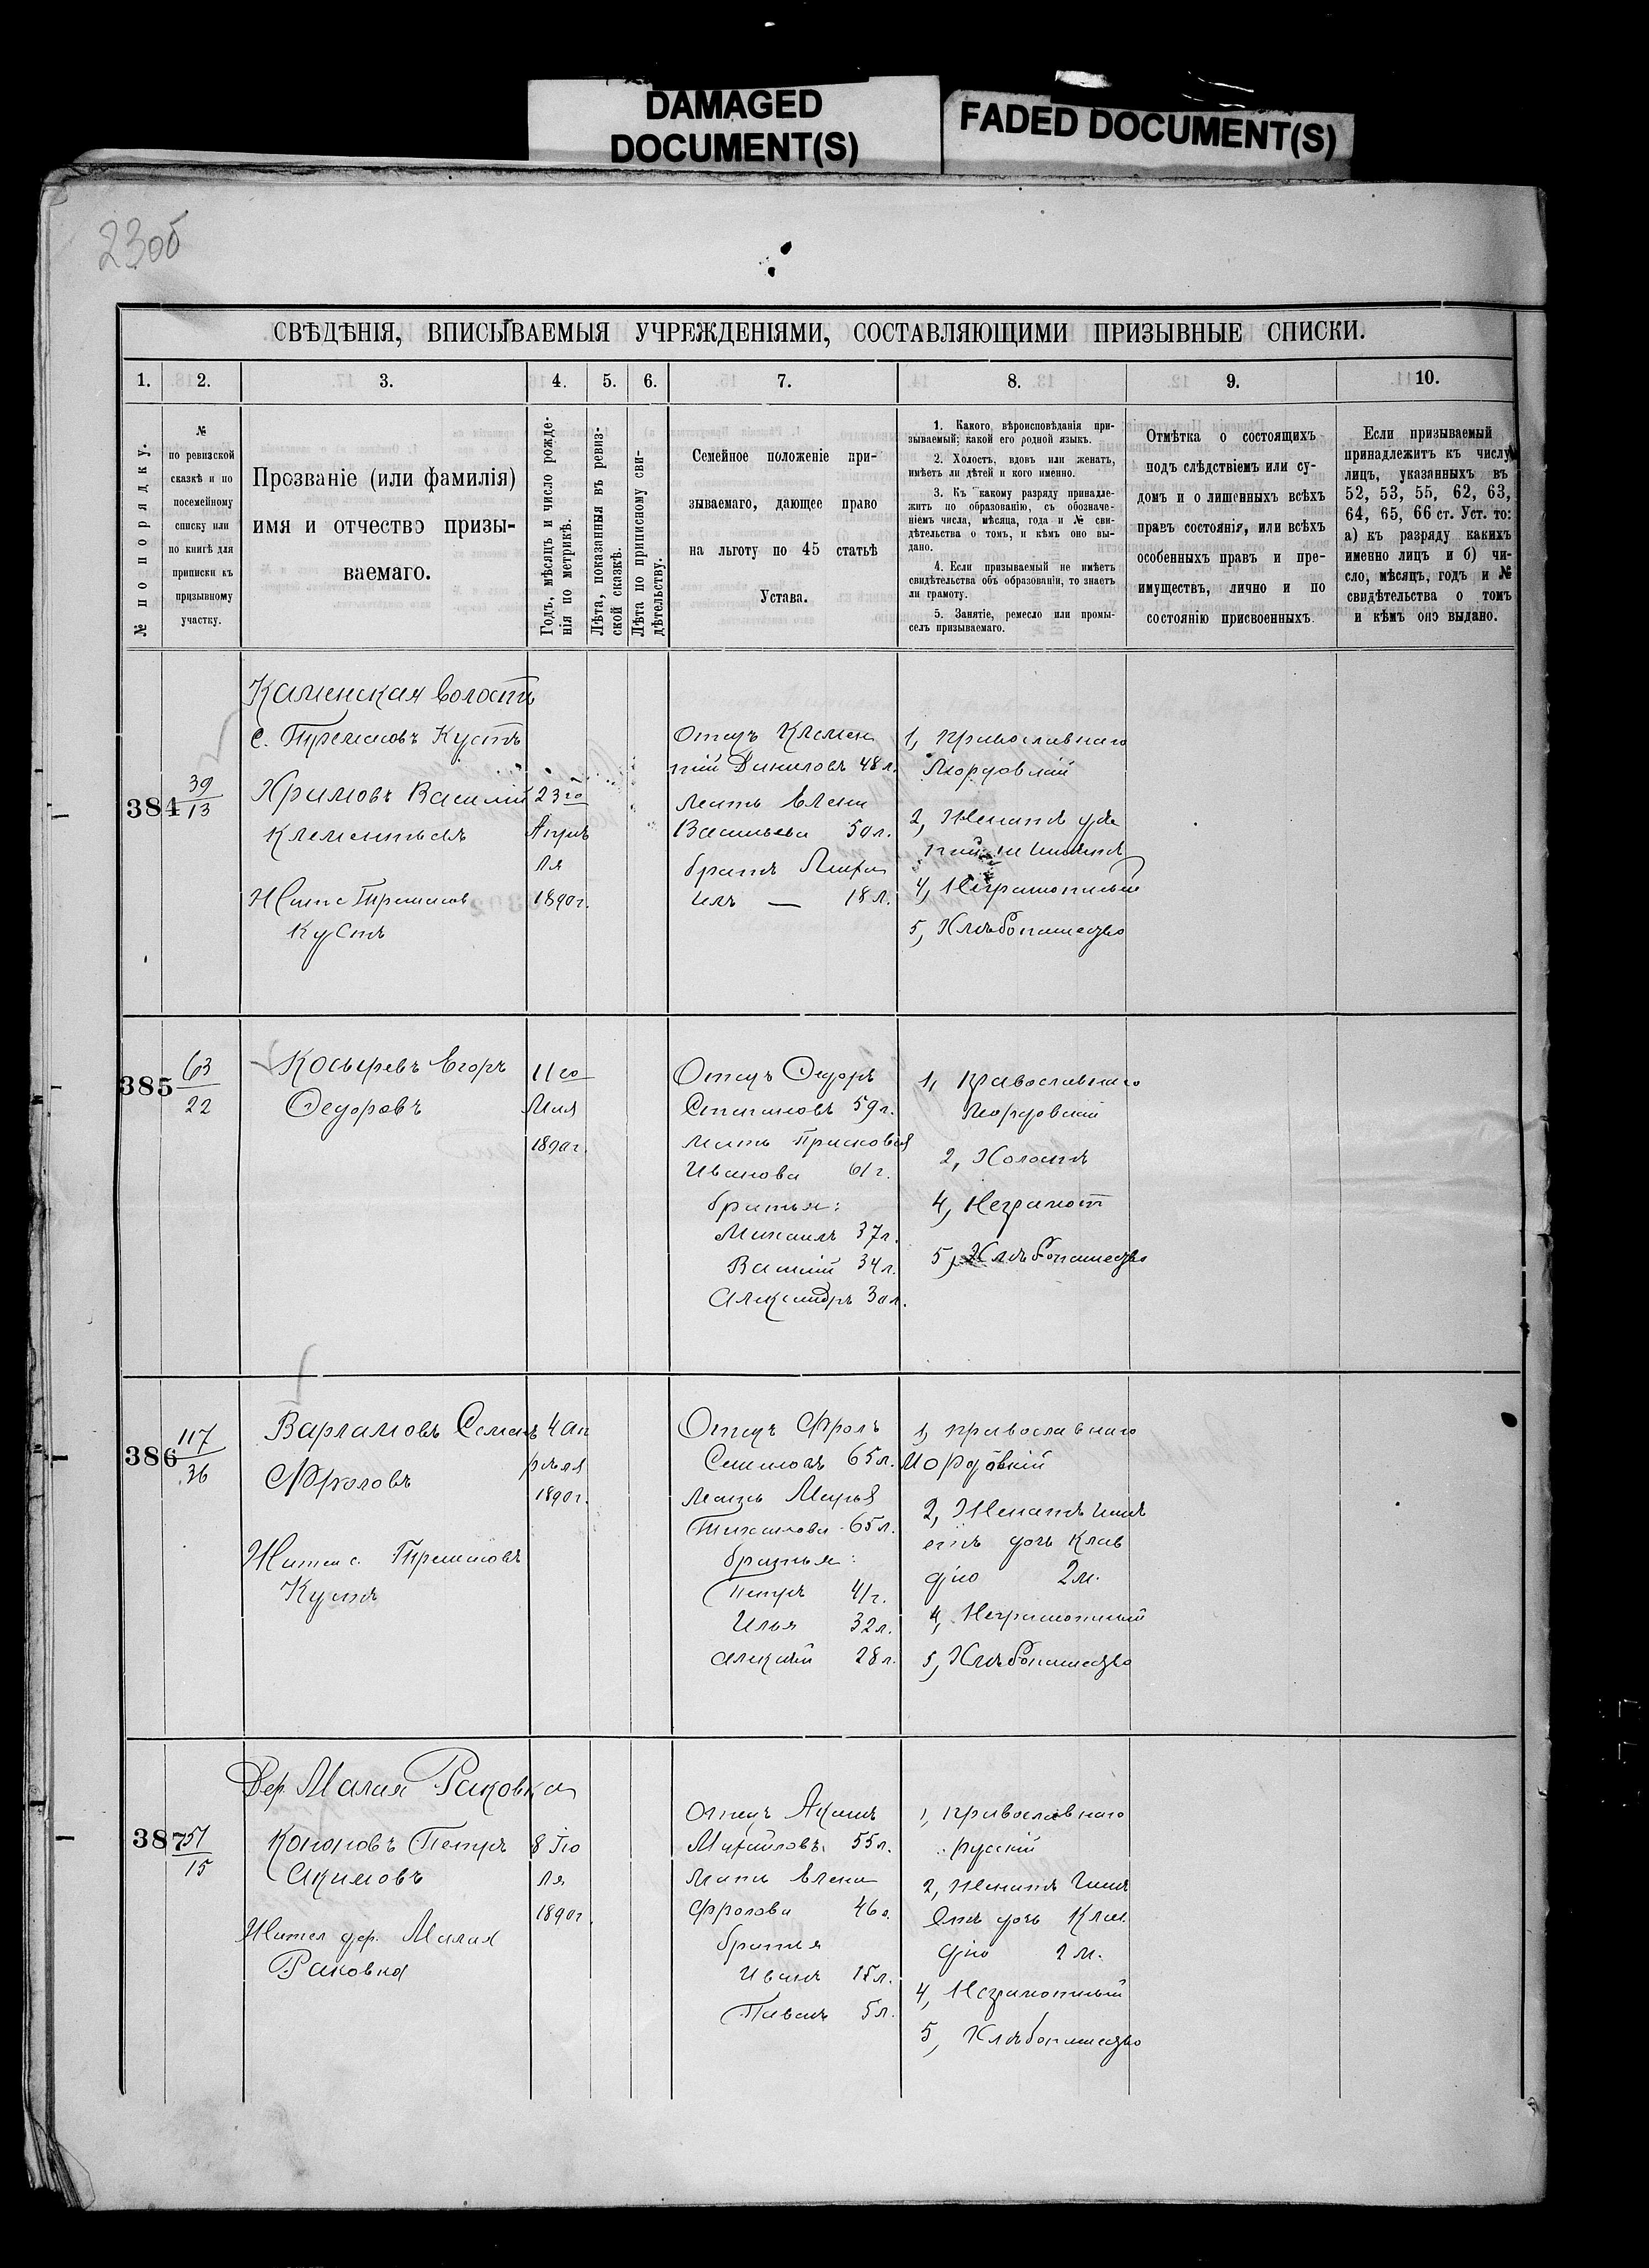 DAMAGED
DOCUMENT(S)
FADED DOCUMENT(S)
230б
СВѢДѢНІЯ, ВПИСЫВАЕМЫЯ УЧРЕЖДЕНІЯМИ, СОСТАВЛЯЮЩИМИ ПРИЗЫВНЫЕ СПИСКИ.
1. 2. 3. 4. 5. 6. 7. 8. 9. 10.
№ по порядку.
№
по ревизской
сказкѣ и по
посемейному
списку или
по книгѣ для
приписки къ
призывному
участку.
Прозваніе (или фамилія)
имя и отчество призы-
ваемаго.
Годъ, мѣсяцъ и число рожде-
нія по метрикѣ.
Лѣта, показанныя въ ревиз-
ской сказкѣ.
Лѣта по приписному сви-
дѣтельству.
Семейное положеніе при-
зываемаго, дающее право
на льготу по 45 статьѣ
Устава.
1. Какого вѣроисповѣданія при-
зываемый; какой его родной языкъ.
2. Холостъ, вдовъ или женатъ,
имѣетъ ли дѣтей и кого именно.
3. Къ какому разряду принадле-
житъ по образованію, съ обозначе-
ніемъ числа, мѣсяца, года и № сви-
дѣтельства о томъ, и кѣмъ оно вы-
дано.
4. Если призываемый не имѣетъ
свидѣтельства объ образованіи, то знаетъ
ли грамоту.
5. Занятіе, ремесло или промы-
селъ призываемаго.
Отмѣтка о состоящихъ
подъ слѣдствіемъ или су-
домъ и о лишенныхъ всѣхъ
правъ состоянія, или всѣхъ
особенныхъ правъ и пре-
имуществъ, лично и по
состоянію присвоенныхъ.
Если призываемый
принадлежитъ къ числу
лицъ, указанныхъ въ
52, 53, 55, 62, 63,
64, 65, 66 ст. Уст. то:
а) къ разряду какихъ
именно лицъ и б) чи-
сло, мѣсяцъ, годъ и №
свидѣтельства о томъ
и кѣмъ оно выдано.
Каменская волость
с. Кустъ
384
39
13
Хримовъ Василій
Клементьевъ
Кустъ
23го
Апрѣ
ля
1890г.
Отецъ Клемен
тій Даниловъ 48л.
Мать Елена
Васильева 50л.
братъ Миха
илъ — 18л.
1, Православнаго
Мордовскій
2, Женатъ дѣ
тей не имѣетъ
4, Неграмотный
5, Хлѣбопашество
385
63
22
Косыревъ Егоръ
Ѳедоровъ
11го
Мая
1890г.
Отецъ Ѳедоръ
Степановъ 59л.
Мать Прасковья
Иванова 61г.
братья:
Михаилъ 37л.
Василій 34л.
Александръ 30л.
1, Православнаго
Мордовскій
2, Холостъ
4, Неграмот
5, Хлѣбопашество
386
117
36
Варламовъ Семенъ
Фроловъ
Кустъ
4 Ап
рѣля
1890г.
Отецъ Фролъ
65л.
Мать Марья
Тихонова 65л.
братья:
Петръ 41г.
Илья 32л.
Алексѣй 28л.
1, православнаго
Мордовскій
2, Женатъ имѣ
етъ дочь Клав
дію 2м.
4, Неграмотный
5, Хлѣбопашество
Дер. Малая Раковка
387
51
15
Кононовъ Петръ
Акимовъ
Жител дер. Малая
Раковка
8 Ію
ля
1890г.
Отецъ Акимъ
Михайловъ 55л.
Мать Елена
Фролова 46л.
братья
Иванъ 15л.
Павелъ 5л.
1, православнаго
русскій
2, Женатъ имѣ
етъ дочь Клав
дію 2м.
4, Неграмотный
5, Хлѣбопашество